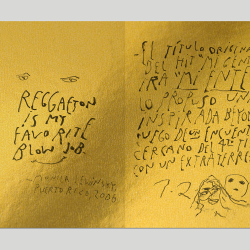 REGGAETON
IS MY
FAVORITE
BLOW JOB.
MONICA LEWINSKY,
PUERTO RICO, 2006
-EL TÍTULO ORIGINA
DEL HIT "MI GENT
ERA "MI ENTE
LO PROPUSO UN
INSPIRADA BEYO
LUEGO DE UN ENCUEN
CERCANO DEL 4º TI
CON UN EXTRATERRE